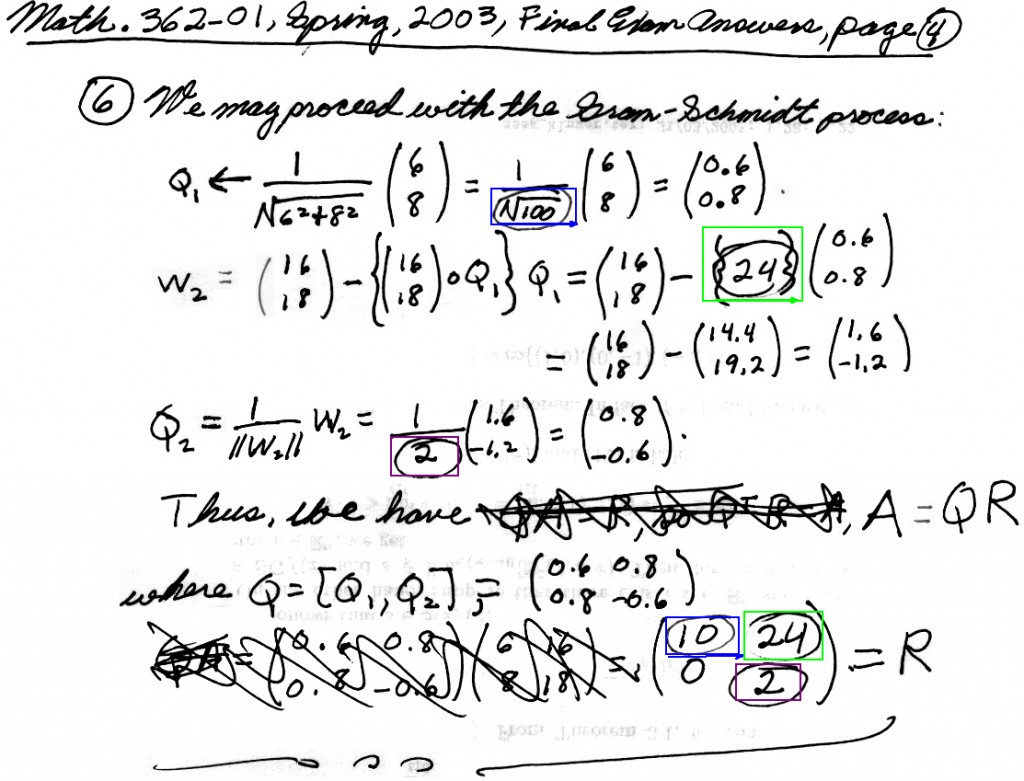 Math. 362-01, Spring, 2003, Final Exam Answers, page ④
⑥ We may proceed with the Gram-Schmidt process:
Q₁ ← 1/√(6²+8²) (6 8) = 1/√100 (6 8) = (0.6 0.8).
W₂ = (16 18) - {(16 18) ∘ Q₁} Q₁ = (16 18) - {24} (0.6 0.8)
= (16 18) - (14.4 19.2) = (1.6 -1.2)
Q₂ = 1/||W₂|| W₂ = 1/2 (1.6 -1.2) = (0.8 -0.6).
Thus, we have , A = QR
where Q = [Q₁, Q₂] = (0.6 0.8 0.8 -0.6)
= (0.6 0.8 0.8 -0.6) (6 16 8 18) = (10 24 0 2) = R